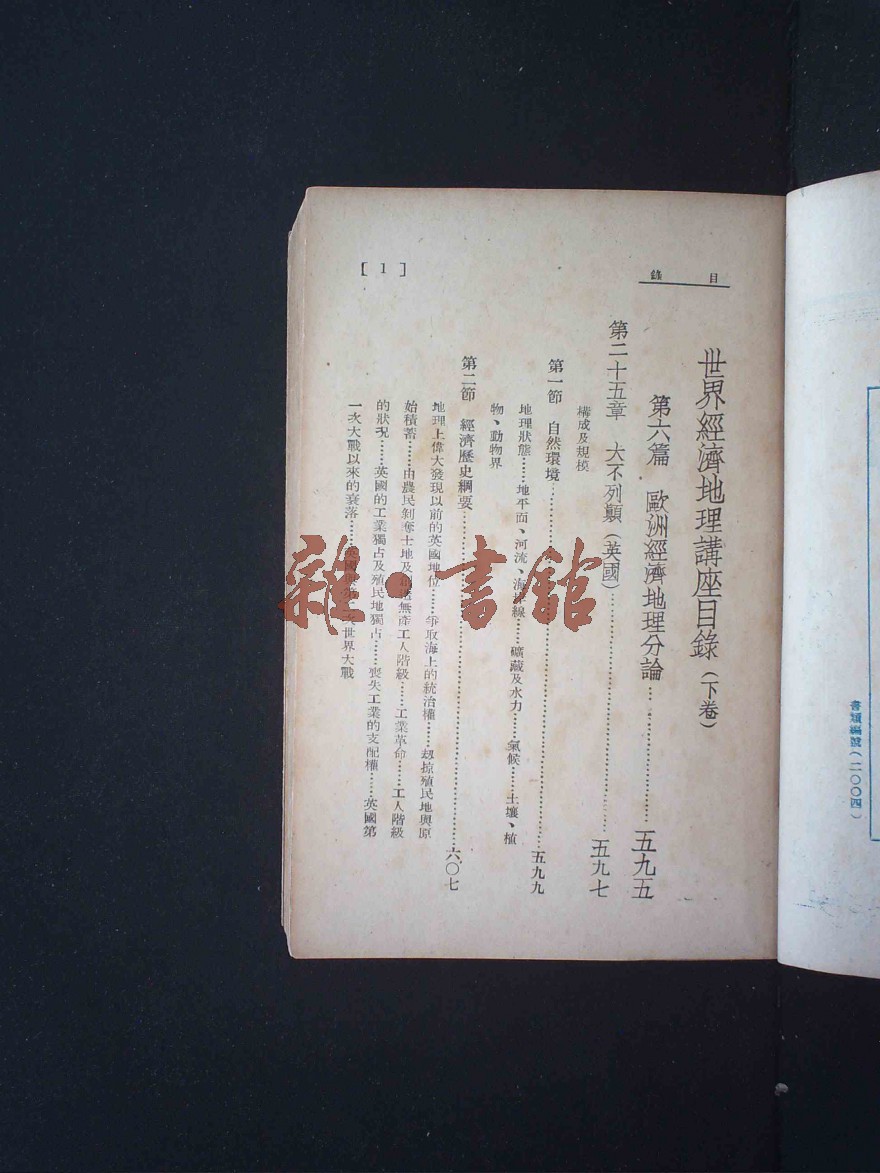 目錄
世界經濟地理講座目錄(下卷)
第六篇 歐洲經濟地理分論……五九五
第二十五章 大不列顚(英國)……五九七
構成及規模
第一節 自然環境……五九九
地理狀態……地平面、河流、海岸線……礦藏及水力……氣候……土壤、植
物、動物界
第二節 經濟歷史綱要……六〇七
地理上偉大發現以前的英國地位……爭取海上的統治權……刼掠殖民地與原
始積蓄……由農民剝奪土地及創造無產工人階級……工業革命……工人階級
的狀况……英國的工業獨占及殖民地獨占……喪失工業的支配權……英國第
一次大戰以來的衰落……世界大戰
[1]
書類編號(二〇〇四)
雜·書館